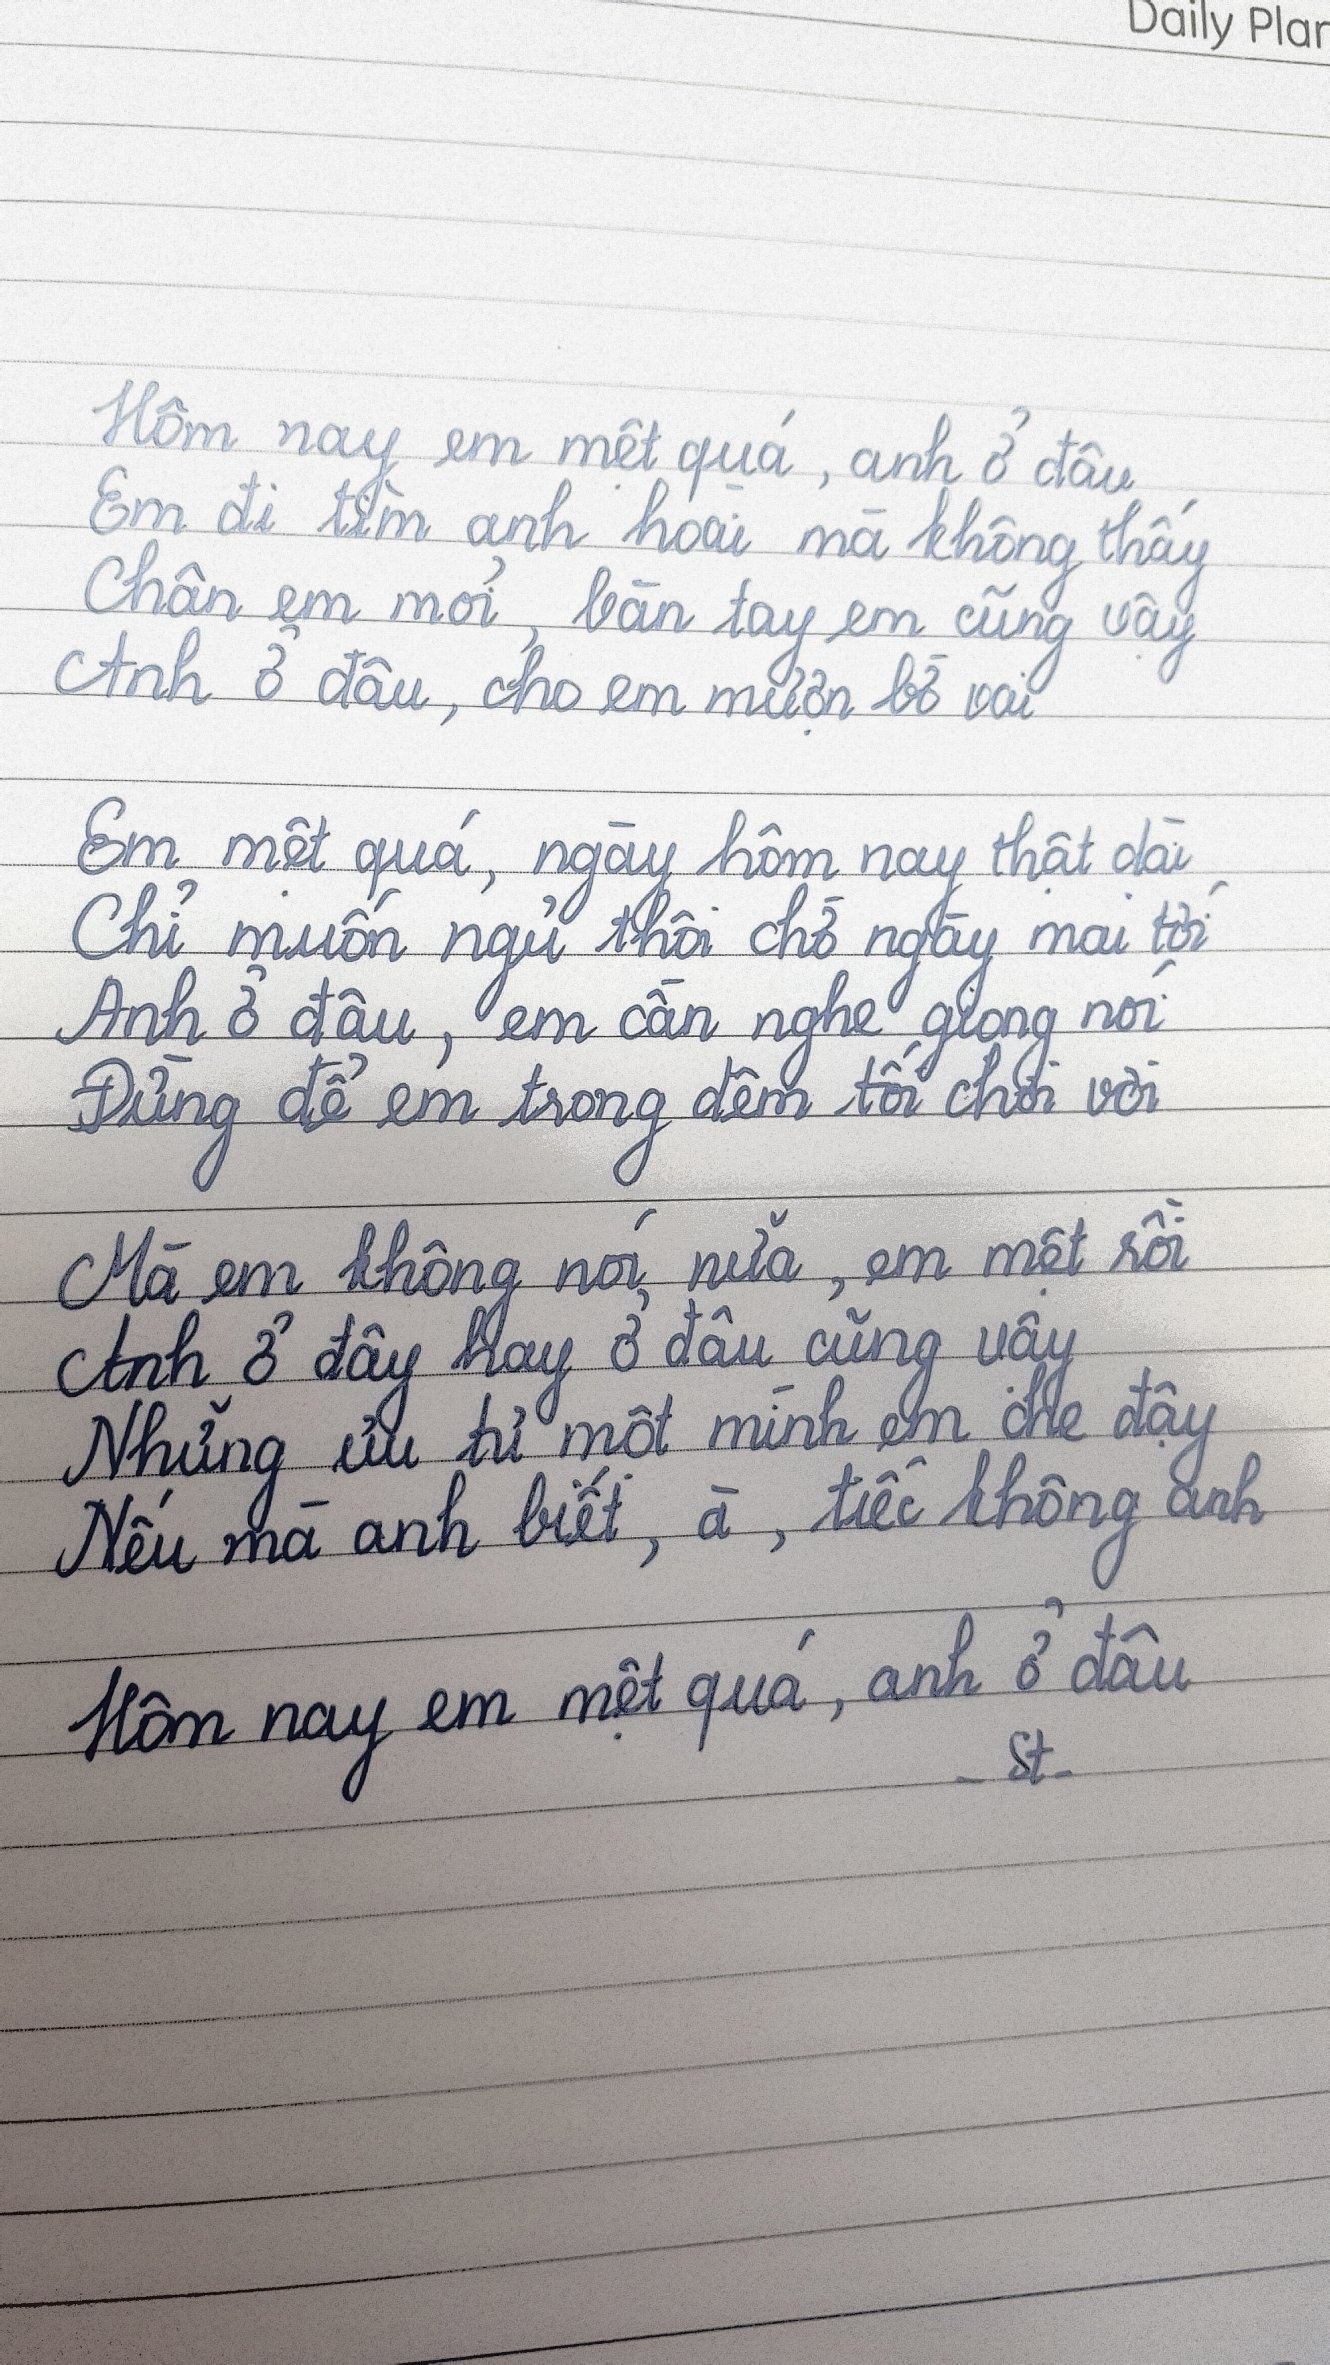 Daily Plan
Hôm nay em mệt quá, anh ở đâu
Em đi tìm anh hoài mà không thấy
Chân em mỏi, bàn tay em cũng vậy
Anh ở đâu, cho em mượn bờ vai
Em mệt quá, ngày hôm nay thật dài
Chỉ muốn ngủ thôi chờ ngày mai tới
Anh ở đâu, em cần nghe giọng nói
Đừng để em trong đêm tối chơi vơi
Mà em không nói nữa, em mệt rồi
Anh ở đây hay ở đâu cũng vậy
Những ưu tư một mình em che đậy
Nếu mà anh biết, à, tiếc không anh
Hôm nay em mệt quá, anh ở đâu
- St -